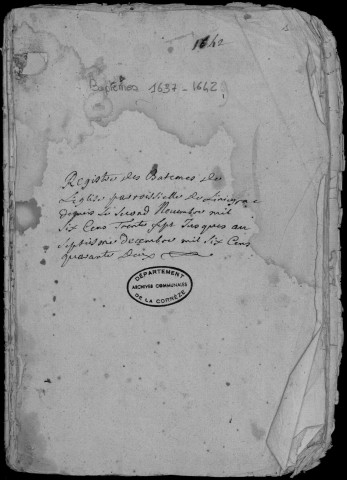 1642
Baptemes 1637-1642
Registre des Batemes de
L'eglise parroissielle de
depuis Le second Novembre mil
Six Cens Trente Sept Jusques au
Septiesme decembre mil Six Cens
quarante Deux
DÉPARTEMENT
ARCHIVES COMMUNALES
DE LA CORRÈZE